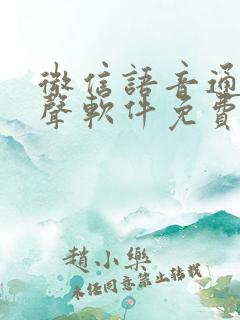 微信語音通
聲軟件免費
趙小樂
未經同意禁止轉載